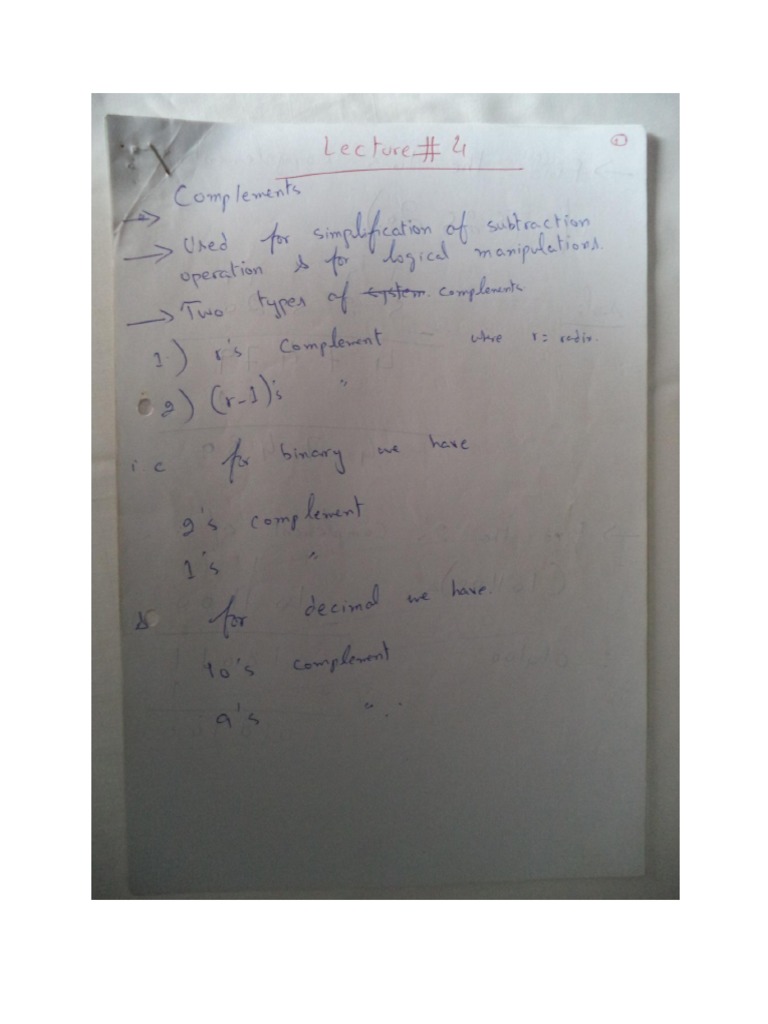 Lecture # 4
1
→ Complements
→ Used for simplification of subtraction
operation & for logical manipulations.
→ Two types of system complements
1) r's complement where r = radix.
2) (r-1)'s "
i e for binary we have
2's complement
1's "
& for decimal we have.
10's complement
9's "